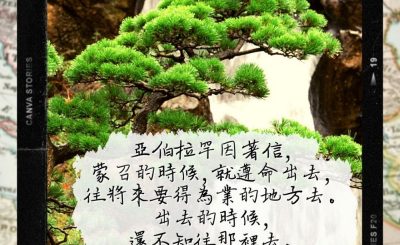 亞伯拉罕因著信,
蒙召的時候,就遵命出去,
往將來要得為業的地方去。
出去的時候,
還不知往那裡去。
CANVA STORIES
19
ES F20